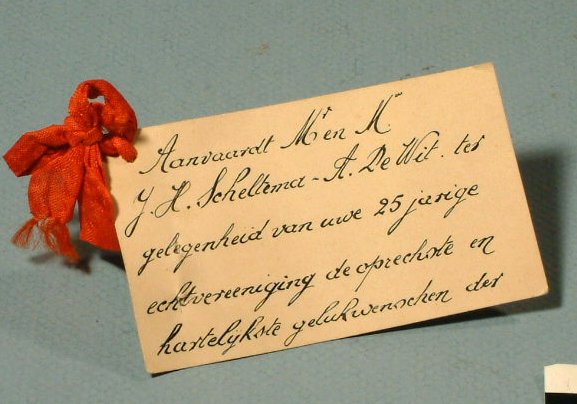 Aanvaardt Mr en Mr
J. H. Scheltema - A. De Wit. ter
gelegenheid van uwe 25 jarige
echtvereeniging de oprechste en
hartelykste gelukwenschen der